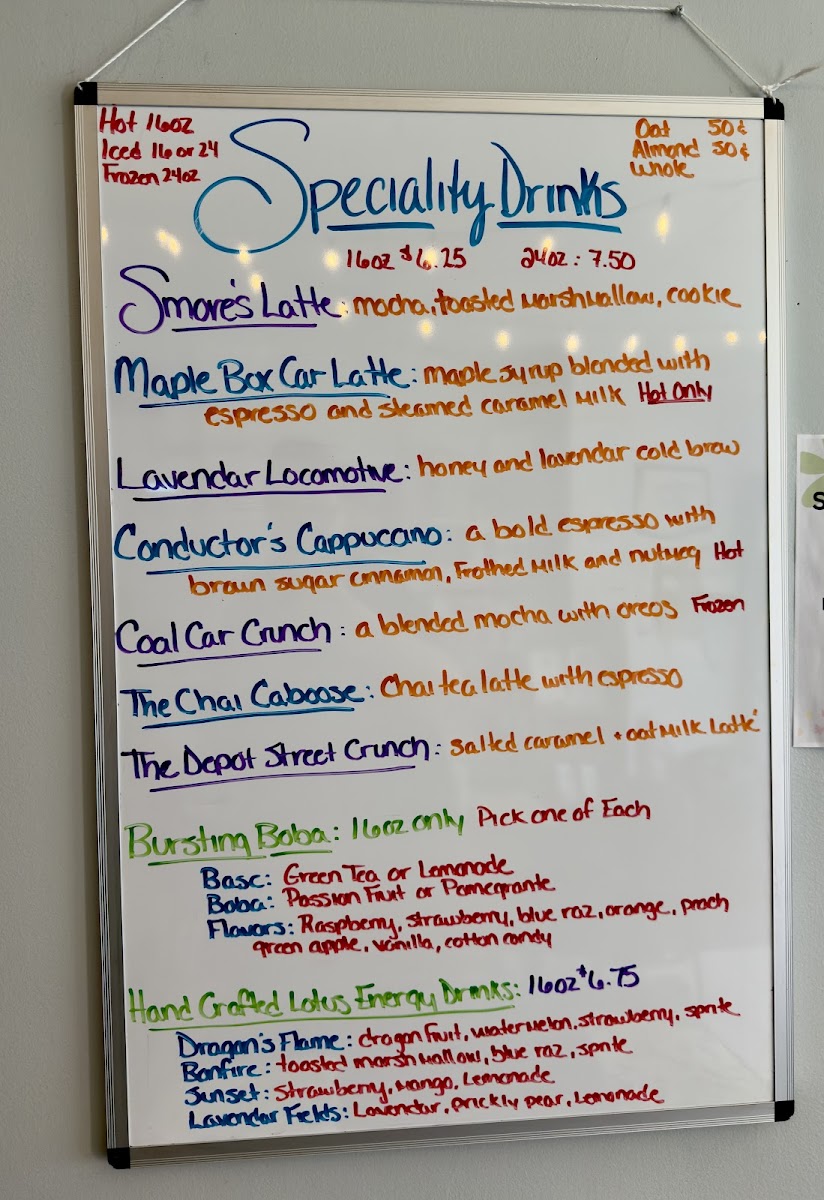 Hot 16oz
Iced 16 or 24
Frozen 24oz
Oat 50¢
Almond 50¢
Whole
Speciality Drinks
16oz $6.25 24oz: 7.50
Smore's Latte: mocha, toasted marshmallow, cookie
Maple Box Car Latte: maple syrup blended with
espresso and steamed caramel milk Hot Only
Lavendar Locomotive: honey and lavendar cold brew
Conductor's Cappucano: a bold espresso with
braun sugar cinnamon, Frothed Milk and nutmeg Hot
Coal Car Crunch: a blended mocha with oreos Frozen
The Chai Caboose: Chai tea latte with espresso
The Depot Street Crunch: salted caramel + oat Milk Latte'
Bursting Boba: 16oz only Pick one of Each
Base: Green Tea or Lemonade
Boba: Passion Fruit or Pomegrante
Flavors: Raspberry, strawberry, blue raz, orange, peach
green apple, vanilla, cotton candy
Hand Crafted Lotus Energy Drinks: 16oz $6.75
Dragon's Flame: dragon fruit, watermelon, strawberry, sprite
Bonfire: toasted marshmallow, blue raz, sprite
Sunset: Strawberry, Mango, Lemonade
Lavendar Fields: Lavendar, prickly pear, Lemonade
S